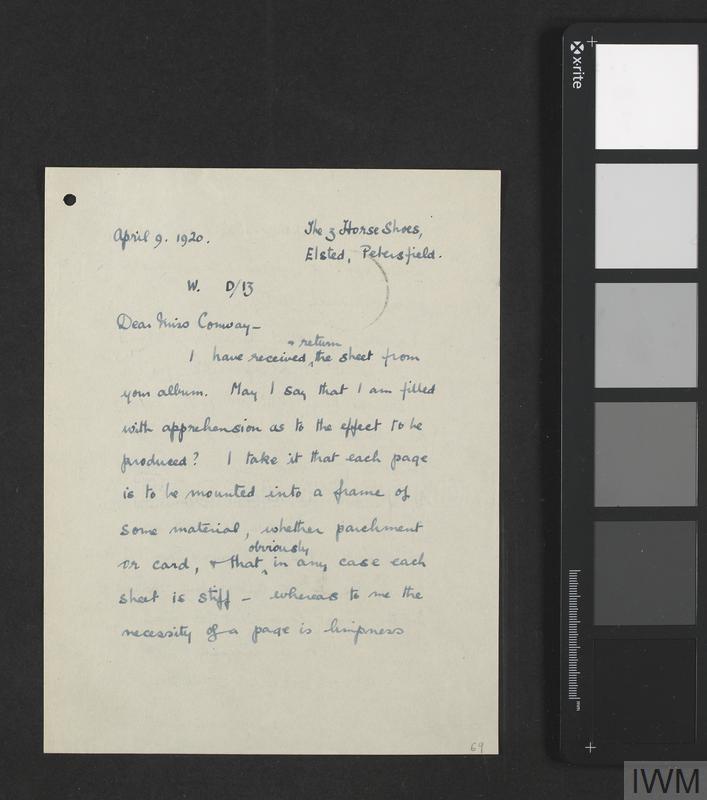 April 9. 1920.
The 3 Horse Shoes,
Elsted, Petersfield.
W. D/13
Dear Miss Conway—
I have received & return the sheet from
your album. May I say that I am filled
with apprehension as to the effect to be
produced? I take it that each page
is to be mounted into a frame of
some material, whether parchment
or card, & that obviously in any case each
sheet is stiff — whereas to me the
necessity of a page is limpness
69
x·rite
mm
IWM